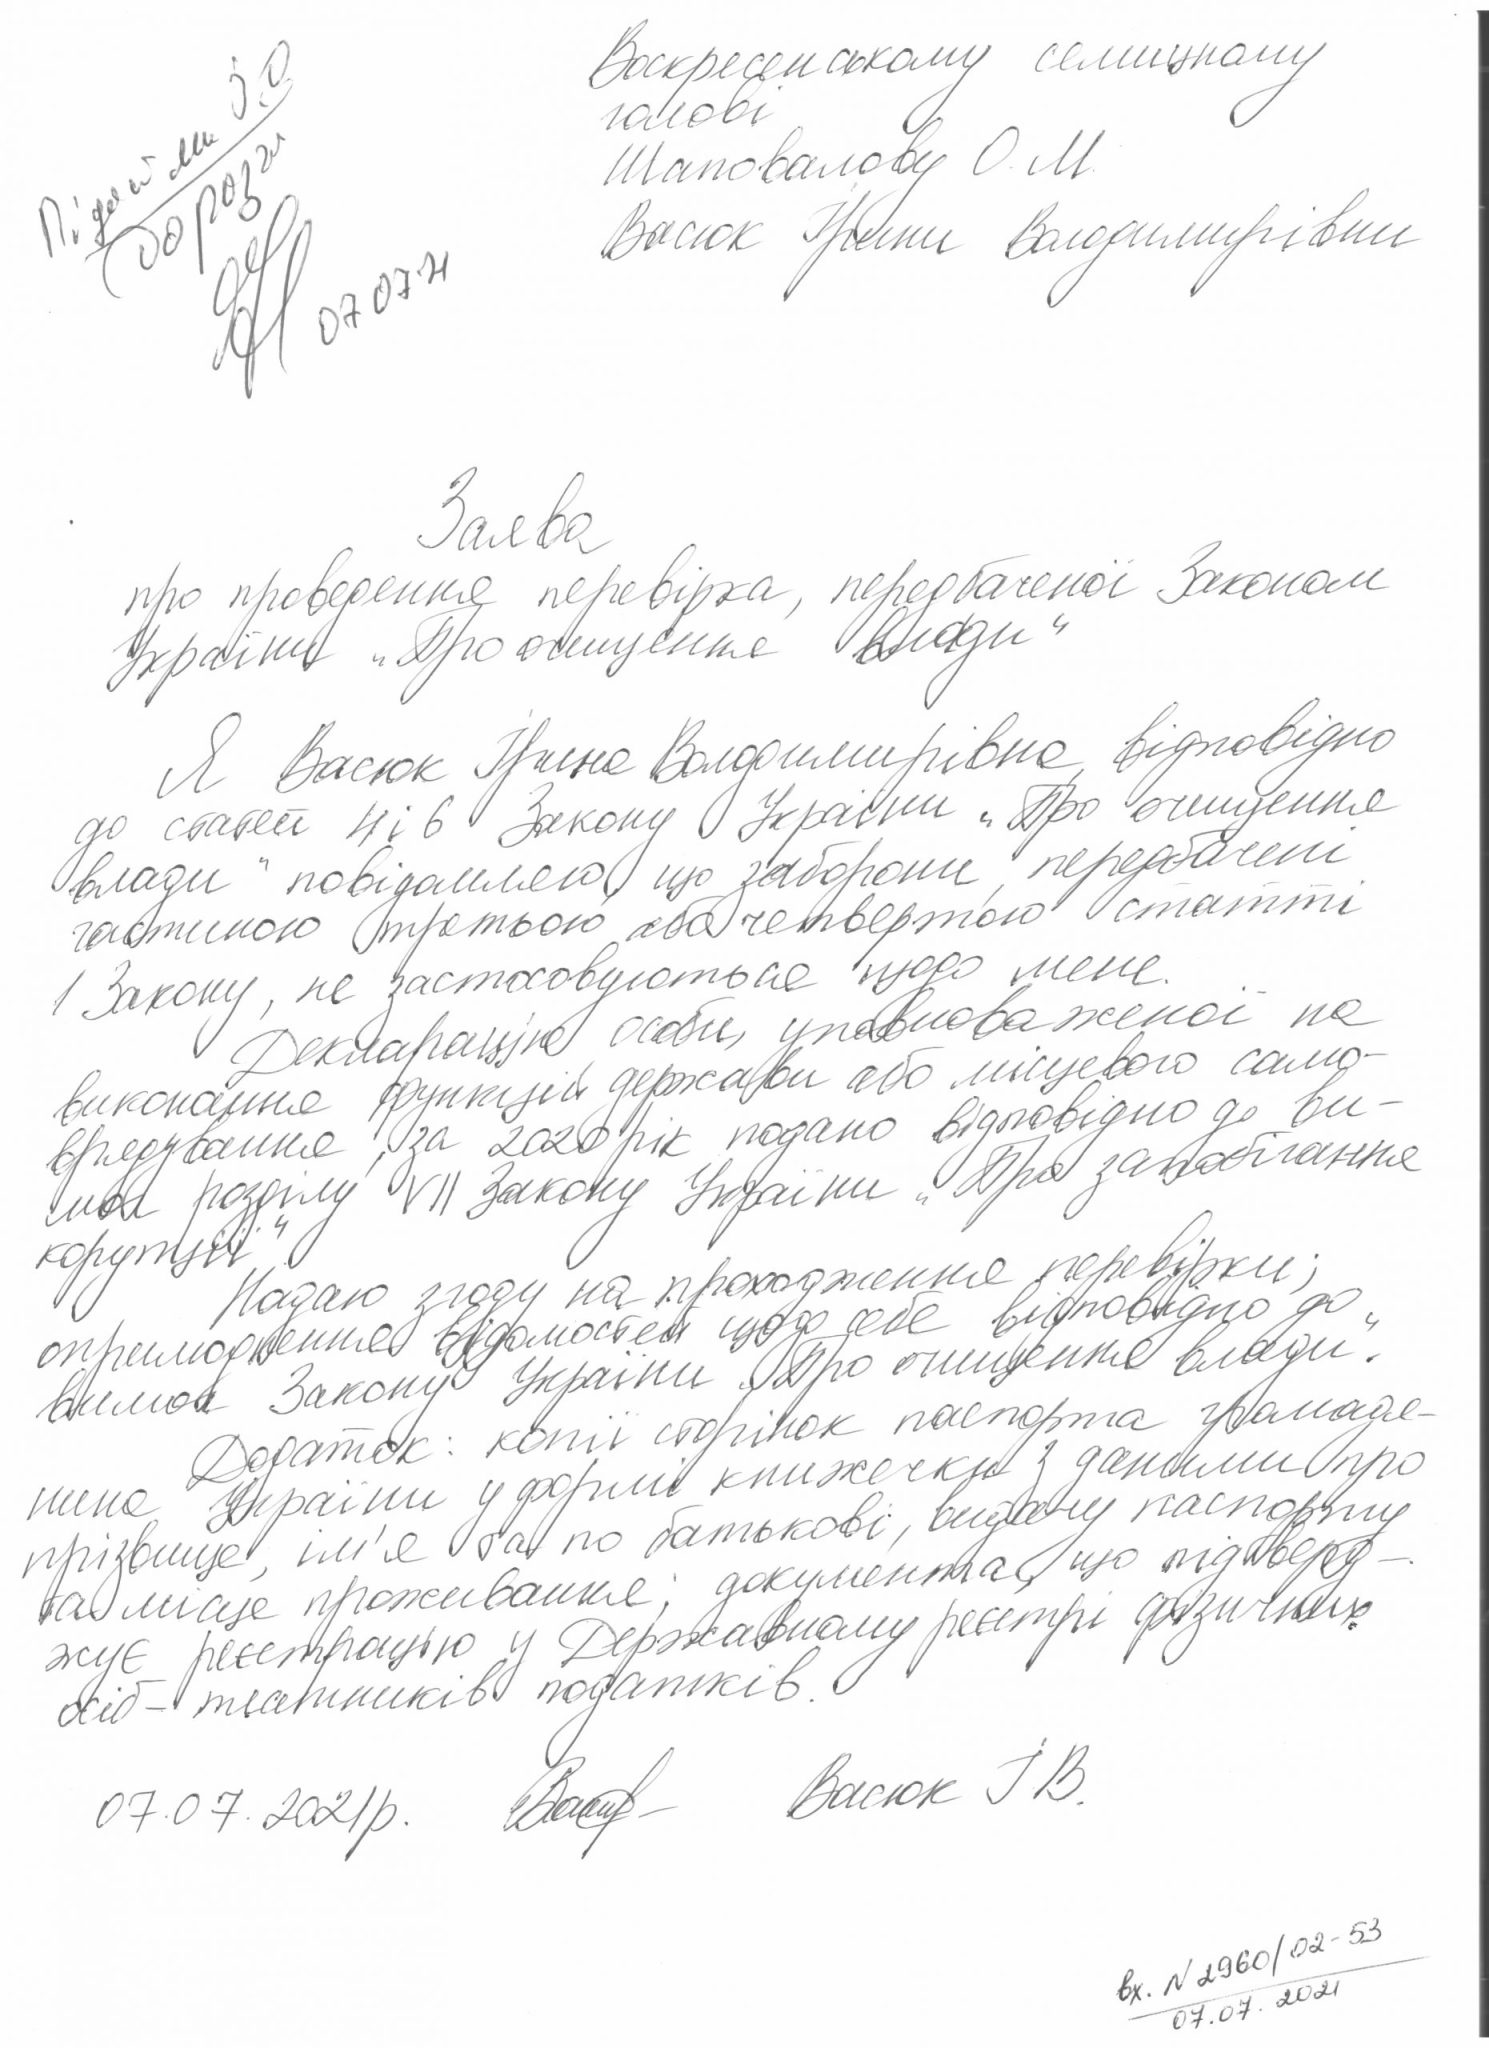 Воскресенському селищному
голові
Шаповалову О.М.
Васюк Ірини Володимирівни
07 07 21
Заява
про проведення перевірка, передбаченої Законом
України „Про очищення влади“
Я Васюк Ірина Володимирівна, відповідно
до статей 4 і 6 Закону України „Про очищення
влади“ повідомляю, що заборони, передбачені
частиною третьою або четвертою статті
1 Закону, не застосовуються щодо мене.
Декларацію особи, уповноваженої на
виконання функцій держави або місцевого само-
врядування, за 2020 рік подано відповідно до ви-
мог розділу VII Закону України „Про запобігання
корупції“.
Надаю згоду на проходження перевірки;
оприлюднення відомостей щодо себе відповідно до
вимог Закону України „Про очищення влади“.
Додаток: копії сторінок паспорта громадя-
нина України у формі книжечки з даними про
прізвище, ім'я та по батькові, видачу паспорту
та місце проживання; документа, що підтверд-
жує реєстрацію у Державному реєстрі фізичних
осіб – платників податків.
07.07.2021р. Васюк І В.
вх. N 2960/02-53
07.07.2021